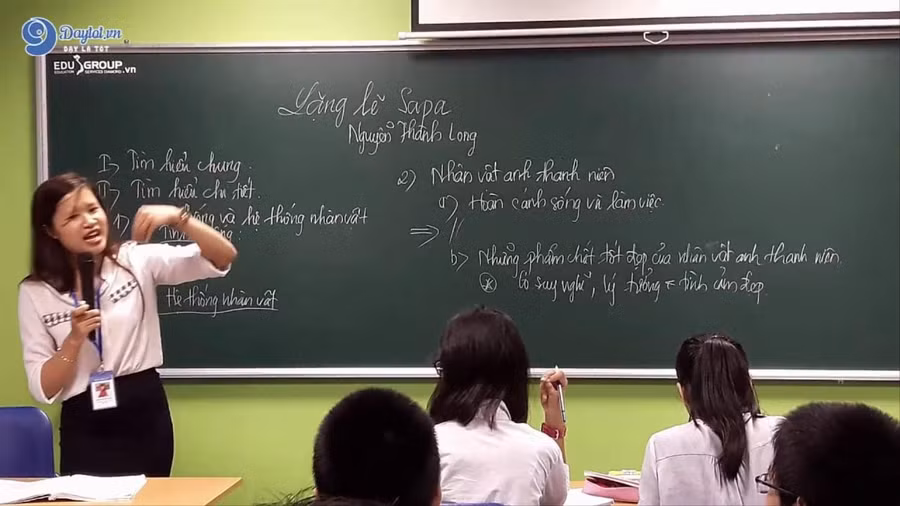 Daytot.vn
DAY LA TOT
EDU GROUP.vn
EDUCATION SERVICES DIAMOND
Lặng lẽ Sapa
Nguyễn Thành Long
I) Tìm hiểu chung.
II) Tìm hiểu chi tiết.
1) huống và hệ thống nhân vật
Tình
Hệ thống nhân vật
2) Nhân vật anh thanh niên
a) Hoàn cảnh sống và làm việc
⇒ //
b) Những phẩm chất tốt đẹp của nhân vật anh thanh niên.
* Có suy nghĩ, lý tưởng + tình cảm đẹp